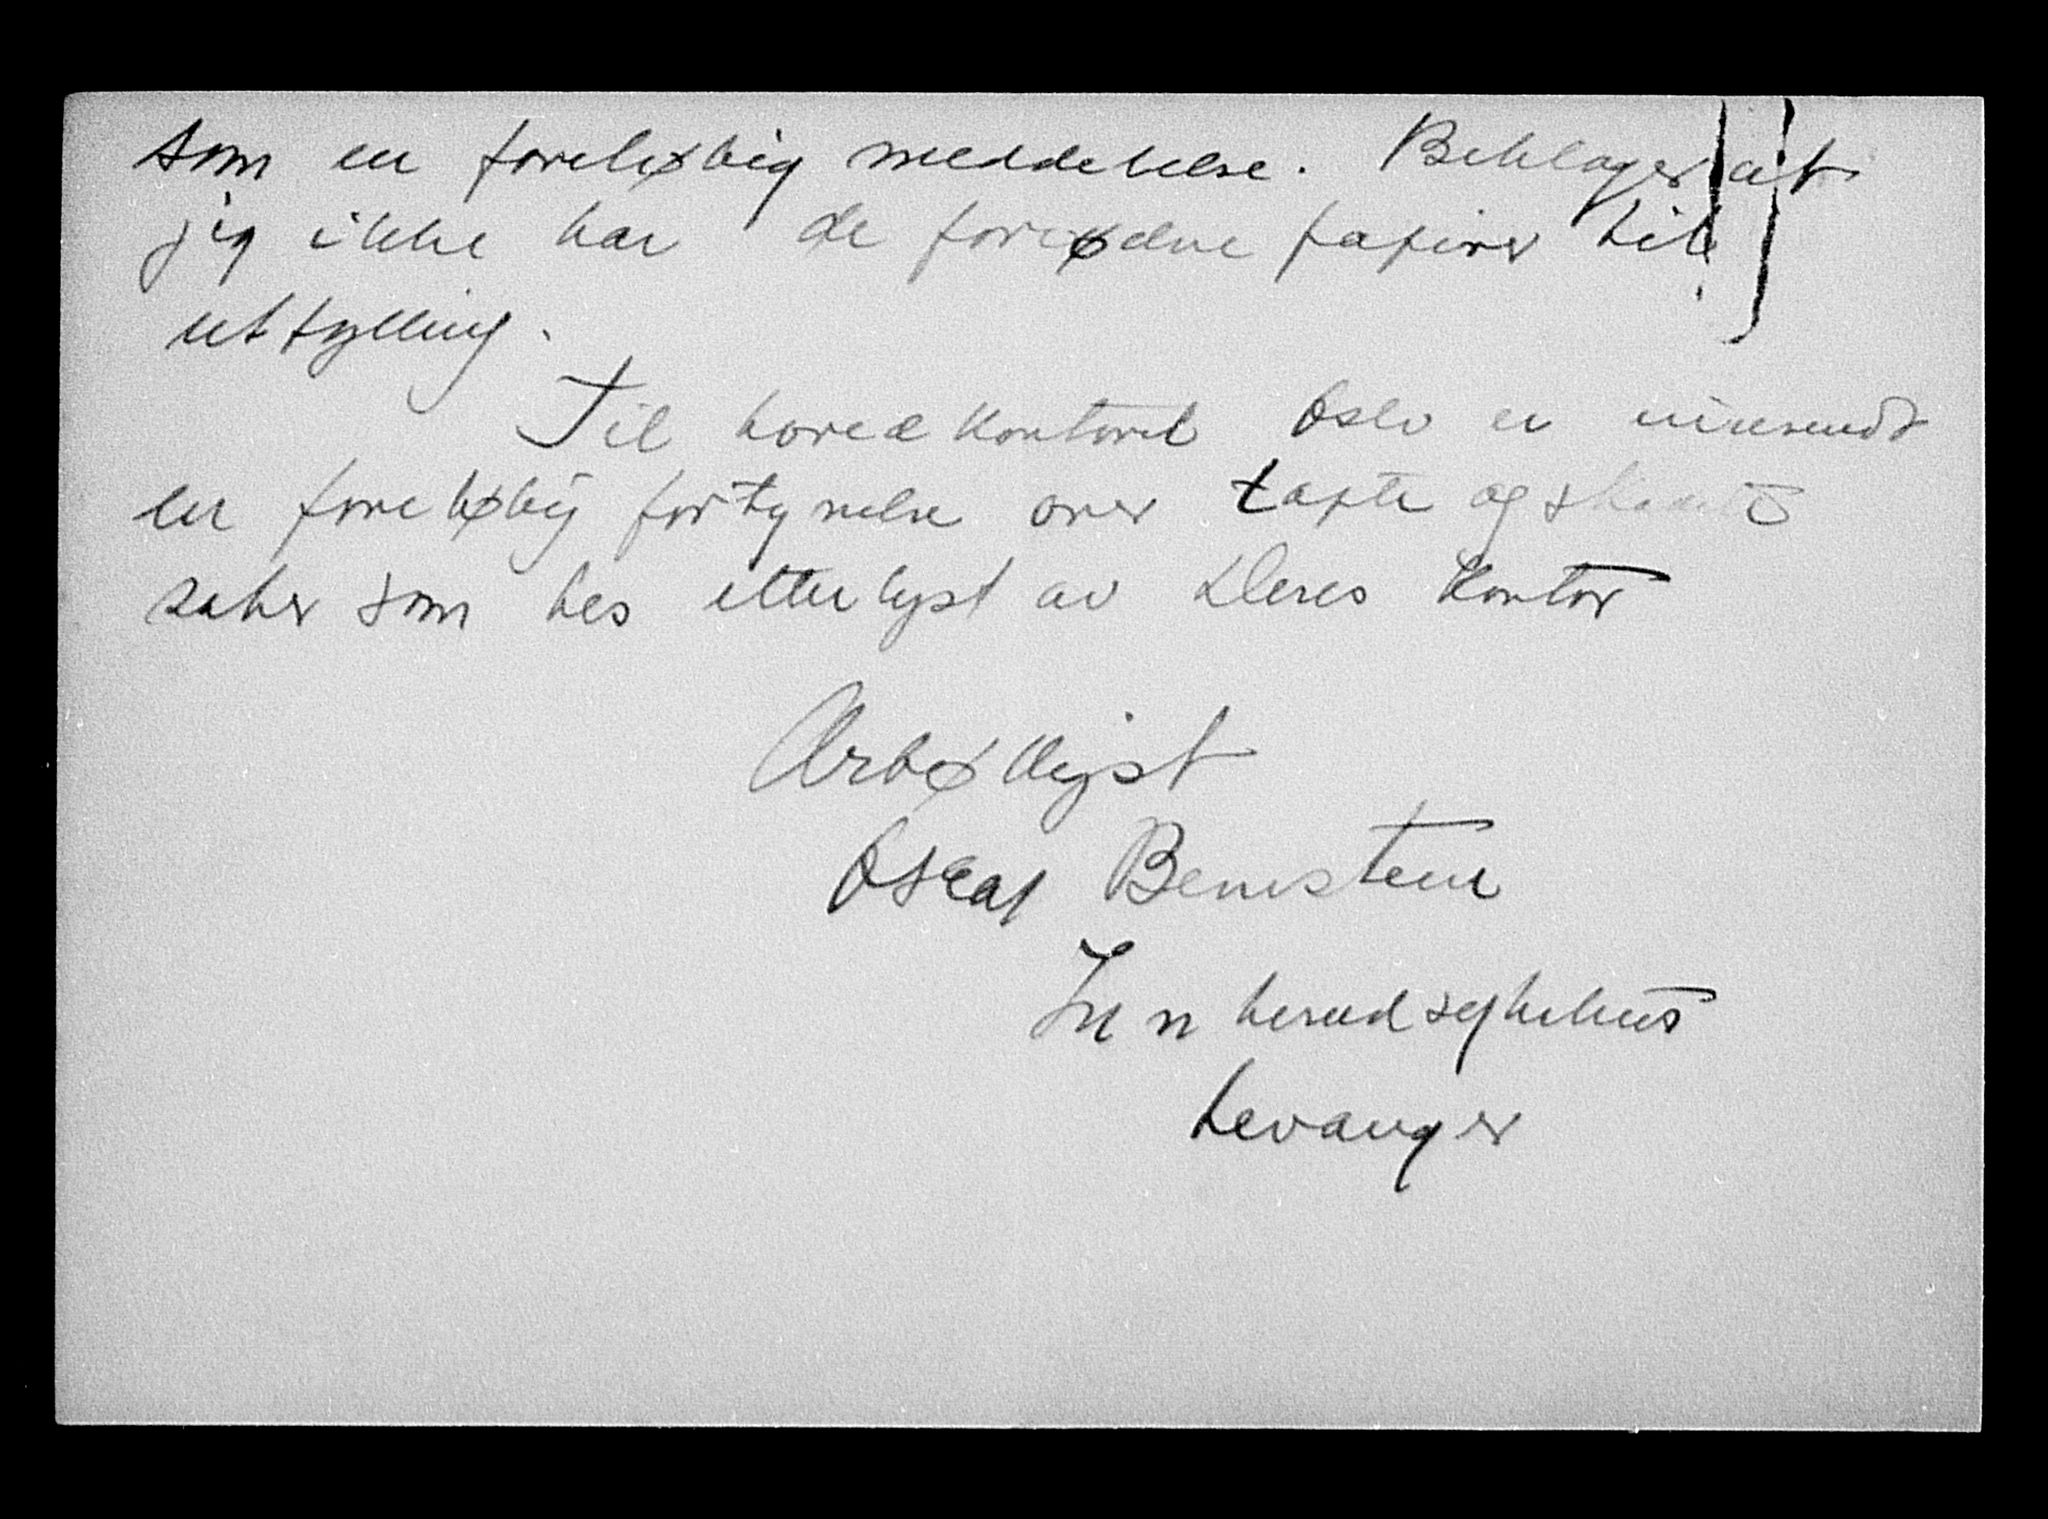 som en foreløbig meddelelse. Beklager at
jeg ikke har de forødne papirer til
utfylling.
Til hovedkontoret Oslo er innsendt
en foreløbig fortegnelse over tapte og skadte
saker som bes etterlyst av Deres Kontor
Ærbødligst
Oscar Bernstein
Innherred sykehus
Levanger